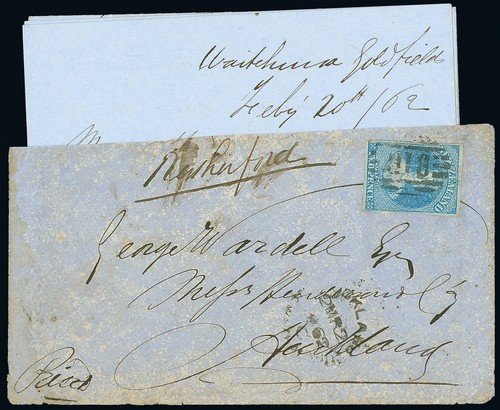 Waitahuna Goldfields
Feby 20th / 62
Rutherford
TWO PENCE
ZEALAND
18
George Wardell Esq
Messrs Henderson & Co
Auckland